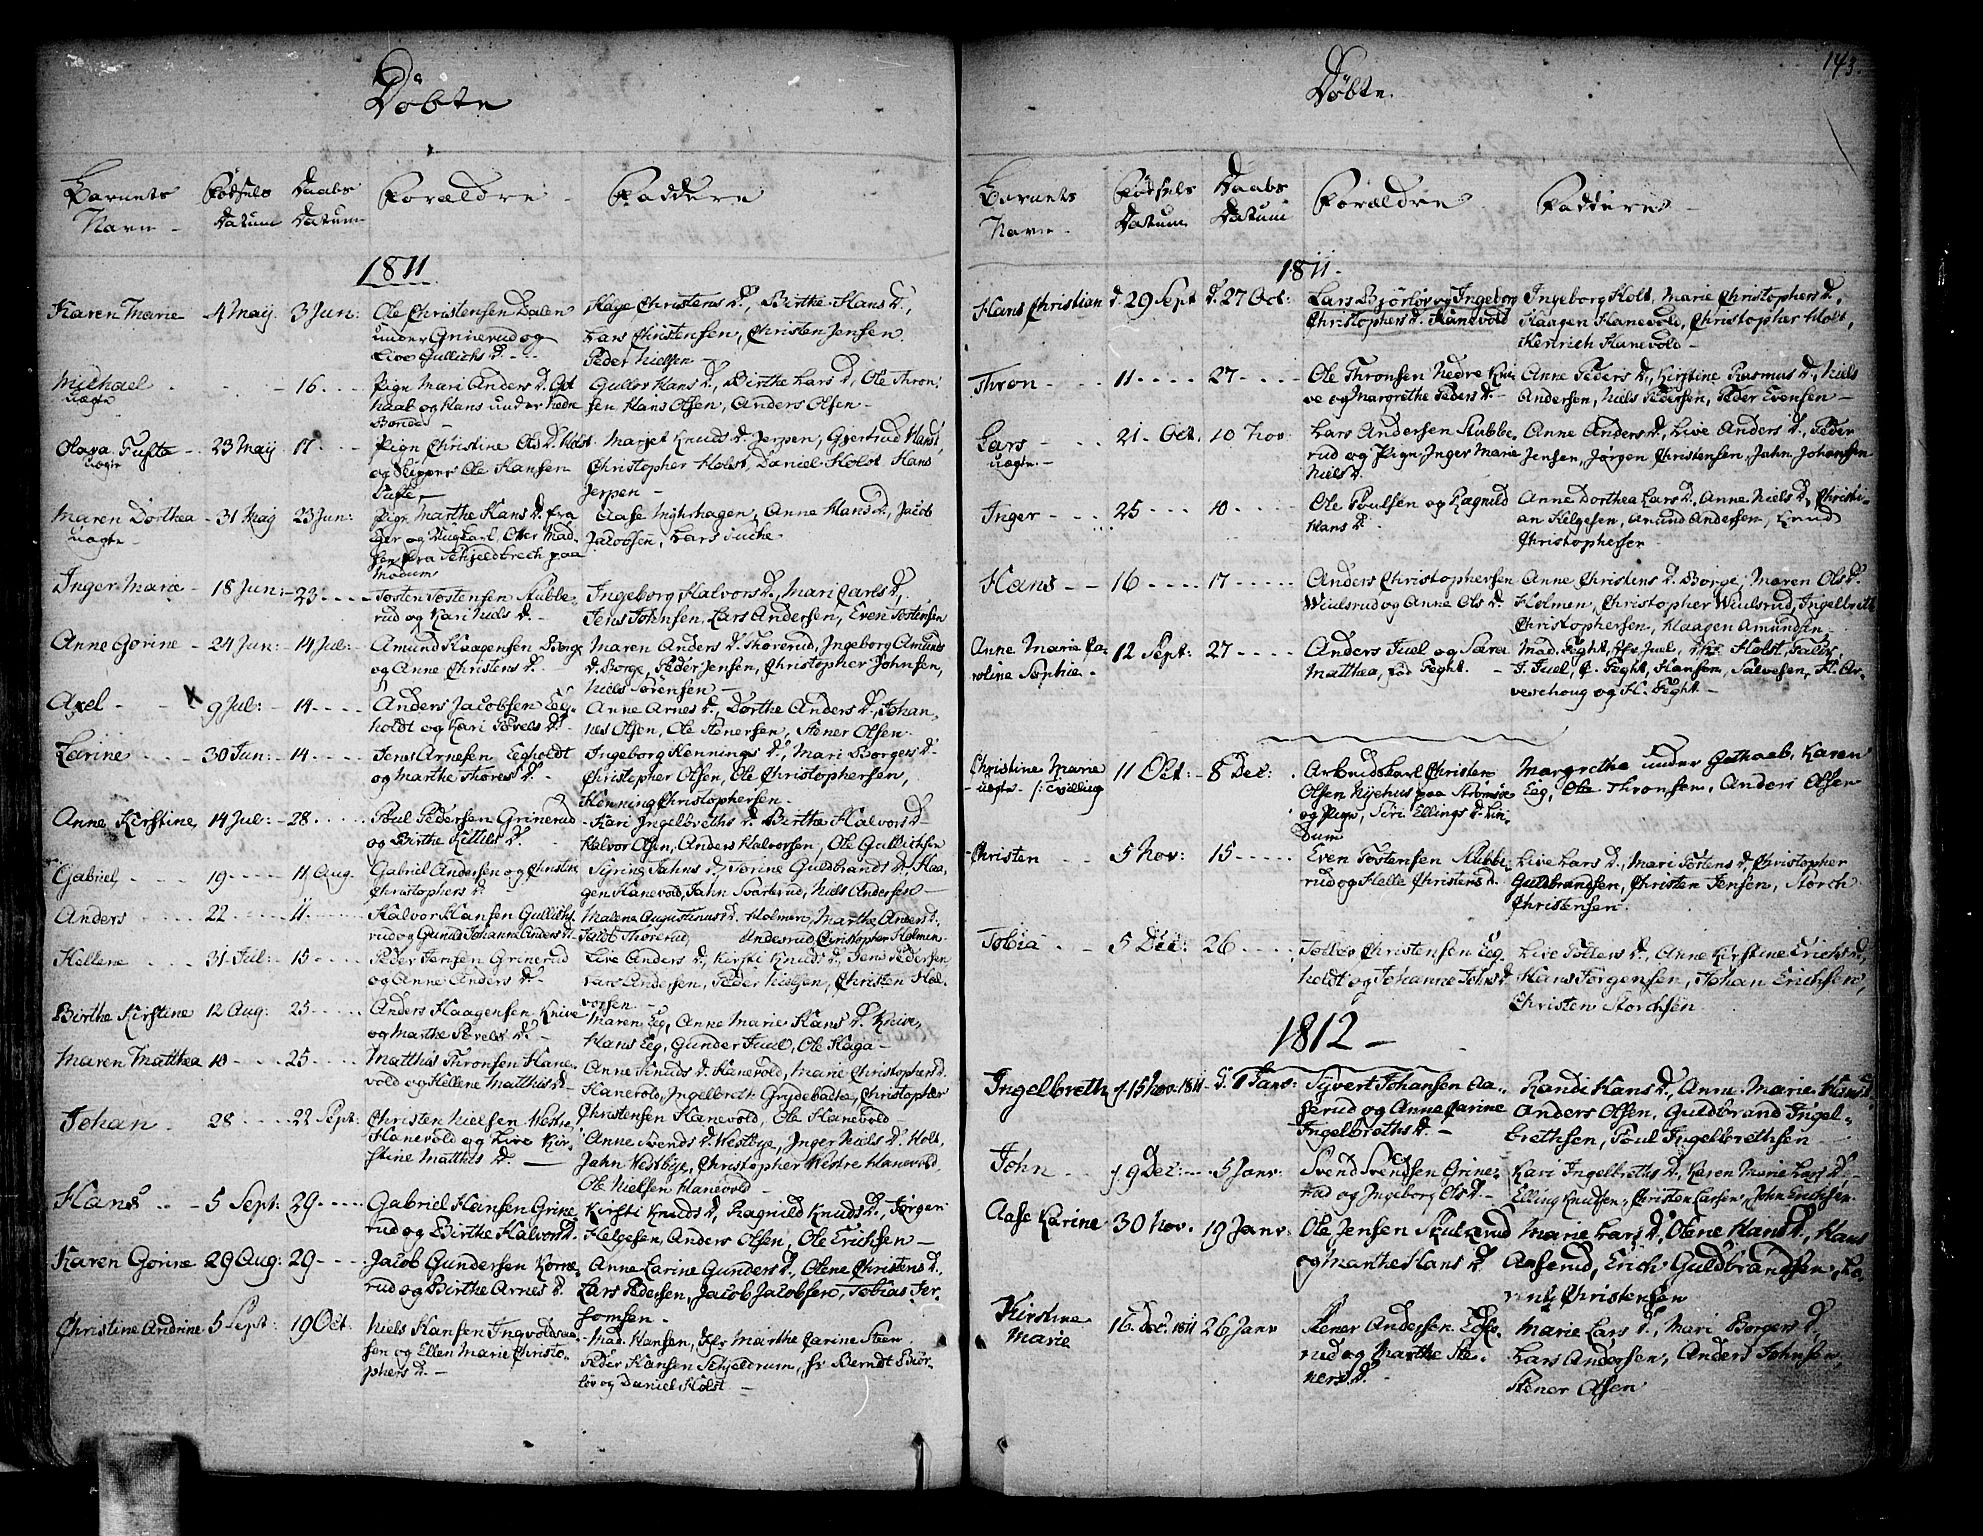 Døbte
Barnets Navn - Fødsels Datum Daabs Datum Forældre - Faddere
1811
Karen Marie 4 May. 3 Jun: Ole Christensen Dalen Christens D., Birthe Hans D.,
under Grinerud og Lars Christensen, Christen Jensen
Live Gullichs D. - Peder Nielsen -
Michael - 16 Pign Mari Anders D. Got Hans D., Birthe Lars D., Ole Thron,
uægte haab og Hans under Nedre sen Hans Olsen, Anders Olsen -
Olava Tufte - 23 May 17 Pign Christine Ols D. Holst Marjet Knuds D. Jerpen, Gjertrud Hans,
uægte og Skipper Ole Hansen Christopher Holst, Daniel Holst Hans
Tufte - Jerpen -
Maren Dorthea - 31 May 23 Jun: Pign Marthe Hans D. fra Aase Anne Hans D., Jacob
uægte - Eger og Ungkarl Mad, Jacobsen, Lars
sen fra paa
Modum
Inger Marie - 18 Jun: - 23 Tosten Tostensen Stubbe, Ingeborg Halvors D., Mari Carls D.,
rud og Kari Niels D. - Jens Johnsen, Lars Andersen, Even Tostensen
Anne Gorine - 24 Jun: - 14 Jul: Amund Haagensen Borge Maren Anders D. Thorerud, Ingeborg Amunds
og Anne Christens D. - D. Borge, Peder Jensen, Christopher Johnsen,
Niels Sørensen -
Axel - x 9 Jul: - 14 Anders Jacobsen Eeg- Anne Arnes D., Dorthe Anders D., Johan,
holdt og Kari Povels D. nes Olsen, Ole Stenersen, Stener Olsen
Larine 30 Jun: 14 Jens Arnesen Eegholdt Ingeborg Hennings D., Mari Borgers D.
og Marthe Thores D. - Christopher Olsen, Ole Christophersen,
Henning Christophersen -
Anne Kirstine 14 Jul: - 28 Poul Pedersen Grinerud Kari Ingelbreths D. Birthe Halvors D
og Birthe Kittils D. - Halvor Olsen, Anders Halvorsen, Ole Gullichsen
Gabriel 19 11 Aug Gabriel Andersen og Christine Syring Jahns D., Torine Guldbrands D., Haa,
Christophers D. gen Hanevold, Jahn Svarterud, Niels Andersen -
Anders 22 11 Halvor Hansen Gullichs, Malene Augustinus D. Holmen, Marthe Anders D.
rud og Gunild Johanne Anders D. - Jacob Thorerud, Christopher Holmen
Hellene 31 Jul: 15 Peder Jensen Grinerud Live Anders D., Kirsti Knuds D., Jens Pedersen
og Anne Anders D. Lars Andersen, Peder Nielsen, Christen Hal,
vorsen -
Birthe Kirstine 12 Aug: 25 Anders Haagensen Knive Maren Eeg, Anne Marie Hans D. Knive,
og Marthe Povels D. - Hans Eeg, Gunder Juul, Ole Haga -
Maren Matthea 10 25 Matthis Thronsen Hane, Anne Knuds D. Hanevold, Marie Christophers D.
vold og Hellene Matthis D. - Hanevold, Ingelbreth Grydebakke, Christopher
Johan 28 22 Sept: Christen Nielsen Vestre Christensen Hanevold, Ole Hanevold
Hanevold og Live Kir, Anne Svends D. Westbye, Inger Niels D. Holt,
stine Matthis D. - Jahn Vestbye, Christopher Vestre Hanevold,
Ole Nielsen Hanevold -
Hans - 5 Sept: 29 Gabriel Hansen Grine, Kirsti Knuds D., Ragnild Knuds D., Jørgen
rud og Birthe Halvors D. Helgesen, Anders Olsen, Ole Erichsen -
Karen Gorine 29 Aug: 29 Jacob Gundersen Korne, Anne Larine Gunders D., Olene Christens D.,
rud og Birthe Arnes D. Lars Pedersen, Jacob Jacobsen, Tobias Jer,
somsen -
Christine Andrine 5 Sept: 19 Oct: Niels Hansen Ingvoldsaa, Mad. Hansen, Marthe Carine Steen
sen og Ellen Marie Christo- Peder Hansen Schjeldrum, Hr Berndt Biør,
phers D. - løv og Daniel Holst -
143.
Døbte.
Barnets Navn - Fødsels Datum Daabs Datum Forældre Faddere -
1811
Hans Christian d. 29 Sept d. 27 Oct: Lars Bjørløv og Ingeborg Ingeborg Holt, Marie Christophers D.
Christophers D. Hanevold Haagen Hanevold, Christopher Holt,
Henrich Hanevold -
Thron - 11 27 Ole Thronsen Nedre Kni, Anne Peders D., Kirstine Rasmus D., Niels
ve og Margrethe Peders D. - Andersen, Niels Pedersen, Peder Evensen -
Lars 21 Oct. 10 Nov: Lars Andersen Stubbe, Anne Anders D., Live Anders D., Peder
uægte. - rud og Pign, Inger Marie Jensen, Jørgen Christensen, Jahn Johansen
Niels D.
Inger - 25 10 Ole Poulsen og Ragnild Anne Dorthea Lars D., Anne Niels D., Christi-
Hans D. an Helgesen, Amund Andersen, Knud
Christophersen
Hans - 16 17 Anders Christophersen Anne Christens D. Borge, Maren Ols D.
Wiulsrud og Anne Ols D. Holmen, Christopher Wiulsrud, Ingelbreth
Christophersen, Haagen Amundsen
Anne Marie Ca- 12 Sept: 27 Anders Juel og Sara Mad. Feght, Juel, Holst,
roline Sophie - Matthea, fød Feght. - J. Juel, C. Feght, Hansen, Salvesen, H. Ar-
veschoug og H. Feght -
Christine Marie 11 Oct: - 8 Dec: Arbeidskarl Christen Margrethe under Gothaab, Karen
- uægte - /: tvilling Olsen Nyehus paa Strømsøe Eeg, Ole Thronsen, Anders Olsen
og Pigen, Siri Ellings D.
Christen 5 Nov: 15 Even Tostensen Stubbe, Live Lars D., Mari Tostens D, Christopher
rud og Helle Christens D. Guldbrandsen, Christen Jensen, Storch
Christensen
Tobia - 5 Dec: 26 Tollev Christensen Eeg, Live Tollevs D., Anne Kirstine Erichs D.,
holdt og Johanne Johs D. Hans Jørgensen, Johan Erichsen,
Christen Storchsen
1812 -
Ingelbreth f. 15 Nov. 1811 d. 1 Janv: Syvert Johansen Aa, Randi Hans D., Anne Marie Hans D.
serud og Anne Carine Anders Olsen, Guldbrand Ingel-
Ingelbreths D. - brethsen, Poul Ingelbrethsen -
John f. 9 Dec: - 5 Janv: Svend Svendsen Grine: Kari Ingelbreths D., Karen Marie Lars D. -
rud og Ingeborg Ols D. - Elling Knudsen, Christen Larsen, John Erichsen
Aase Karine 30 Nov. 19 Janv: Ole Jensen Skulerud Marie Lars D., Olene Hans D., Hans
og Marthe Hans D. Aaserud, Erich Guldbrandsen, La,
rents Christensen
Kirstine Marie 16 Dec: 1811 26 Janv Stener Andersen Marie Lars D., Mari Borgers D.
rud og Marthe Ste, Lars Andersen, Anders Johnsen,
ners D. - Stener Olsen -